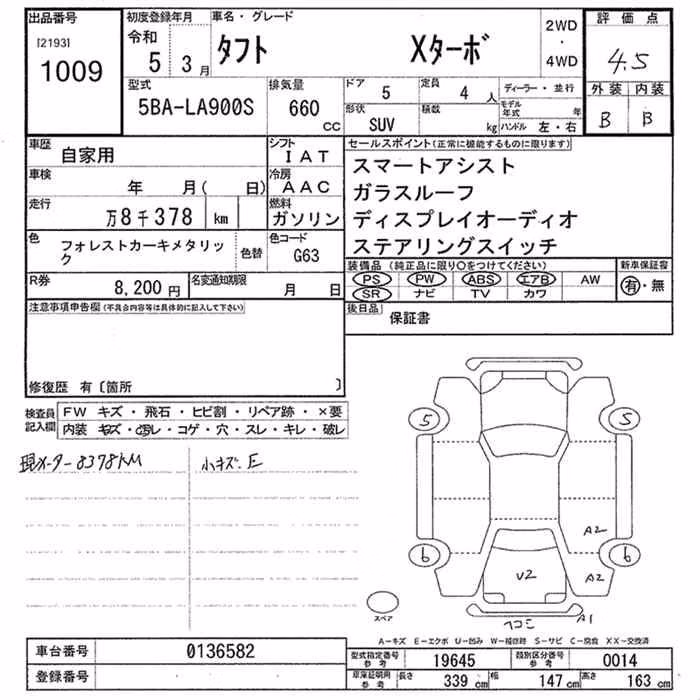 出品番号 初度登録年月 車名・グレード 2WD ・ 4WD 評価点
[2193] 1009 令和 5 3月 タフト Xターボ 4.5
型式 5BA-LA900S 排気量 660 cc ドア 5 定員 4 人 ディーラー・並行 外装 内装
形状 SUV 積数 kg モデル年式 年 ハンドル 左・右 B B
車歴 自家用 シフト IAT セールスポイント(正常に機能するものに限ります)
車検 年 月( 日) 冷房 AAC スマートアシスト
走行 万8千378 km 燃料 ガソリン ガラスルーフ
ディスプレイオーディオ
色 フォレストカーキメタリック 色替 色コード G63 ステアリングスイッチ
装備品(純正品に限り○をつけてください) 新車保証書
PS PW ABS エアB AW 有・無
SR ナビ TV カワ
R券 8,200 円 名変通知期限 月 日
後日品 保証書
注意事項申告欄(不具合内容等は具体的に記入して下さい)
修復歴 有〔箇所 〕
検査員記入欄 FW キズ・飛石・ヒビ割・リペア跡・×要
内装 キズ・汚レ・コゲ・穴・スレ・キレ・破レ
現メーター8378KM 小キズ、E
5 5
A2
6 6
U2 A2
スペア ヘコミ A1
A-キズ E-エクボ U-凹み W-補修跡 S-サビ C-腐食 XX-交換済
車台番号 0136582 型式指定番号 参考 19645 類別区分番号 参考 0014
登録番号 車庫証明用 参考 長さ 339 cm 幅 147 cm 高さ 163 cm